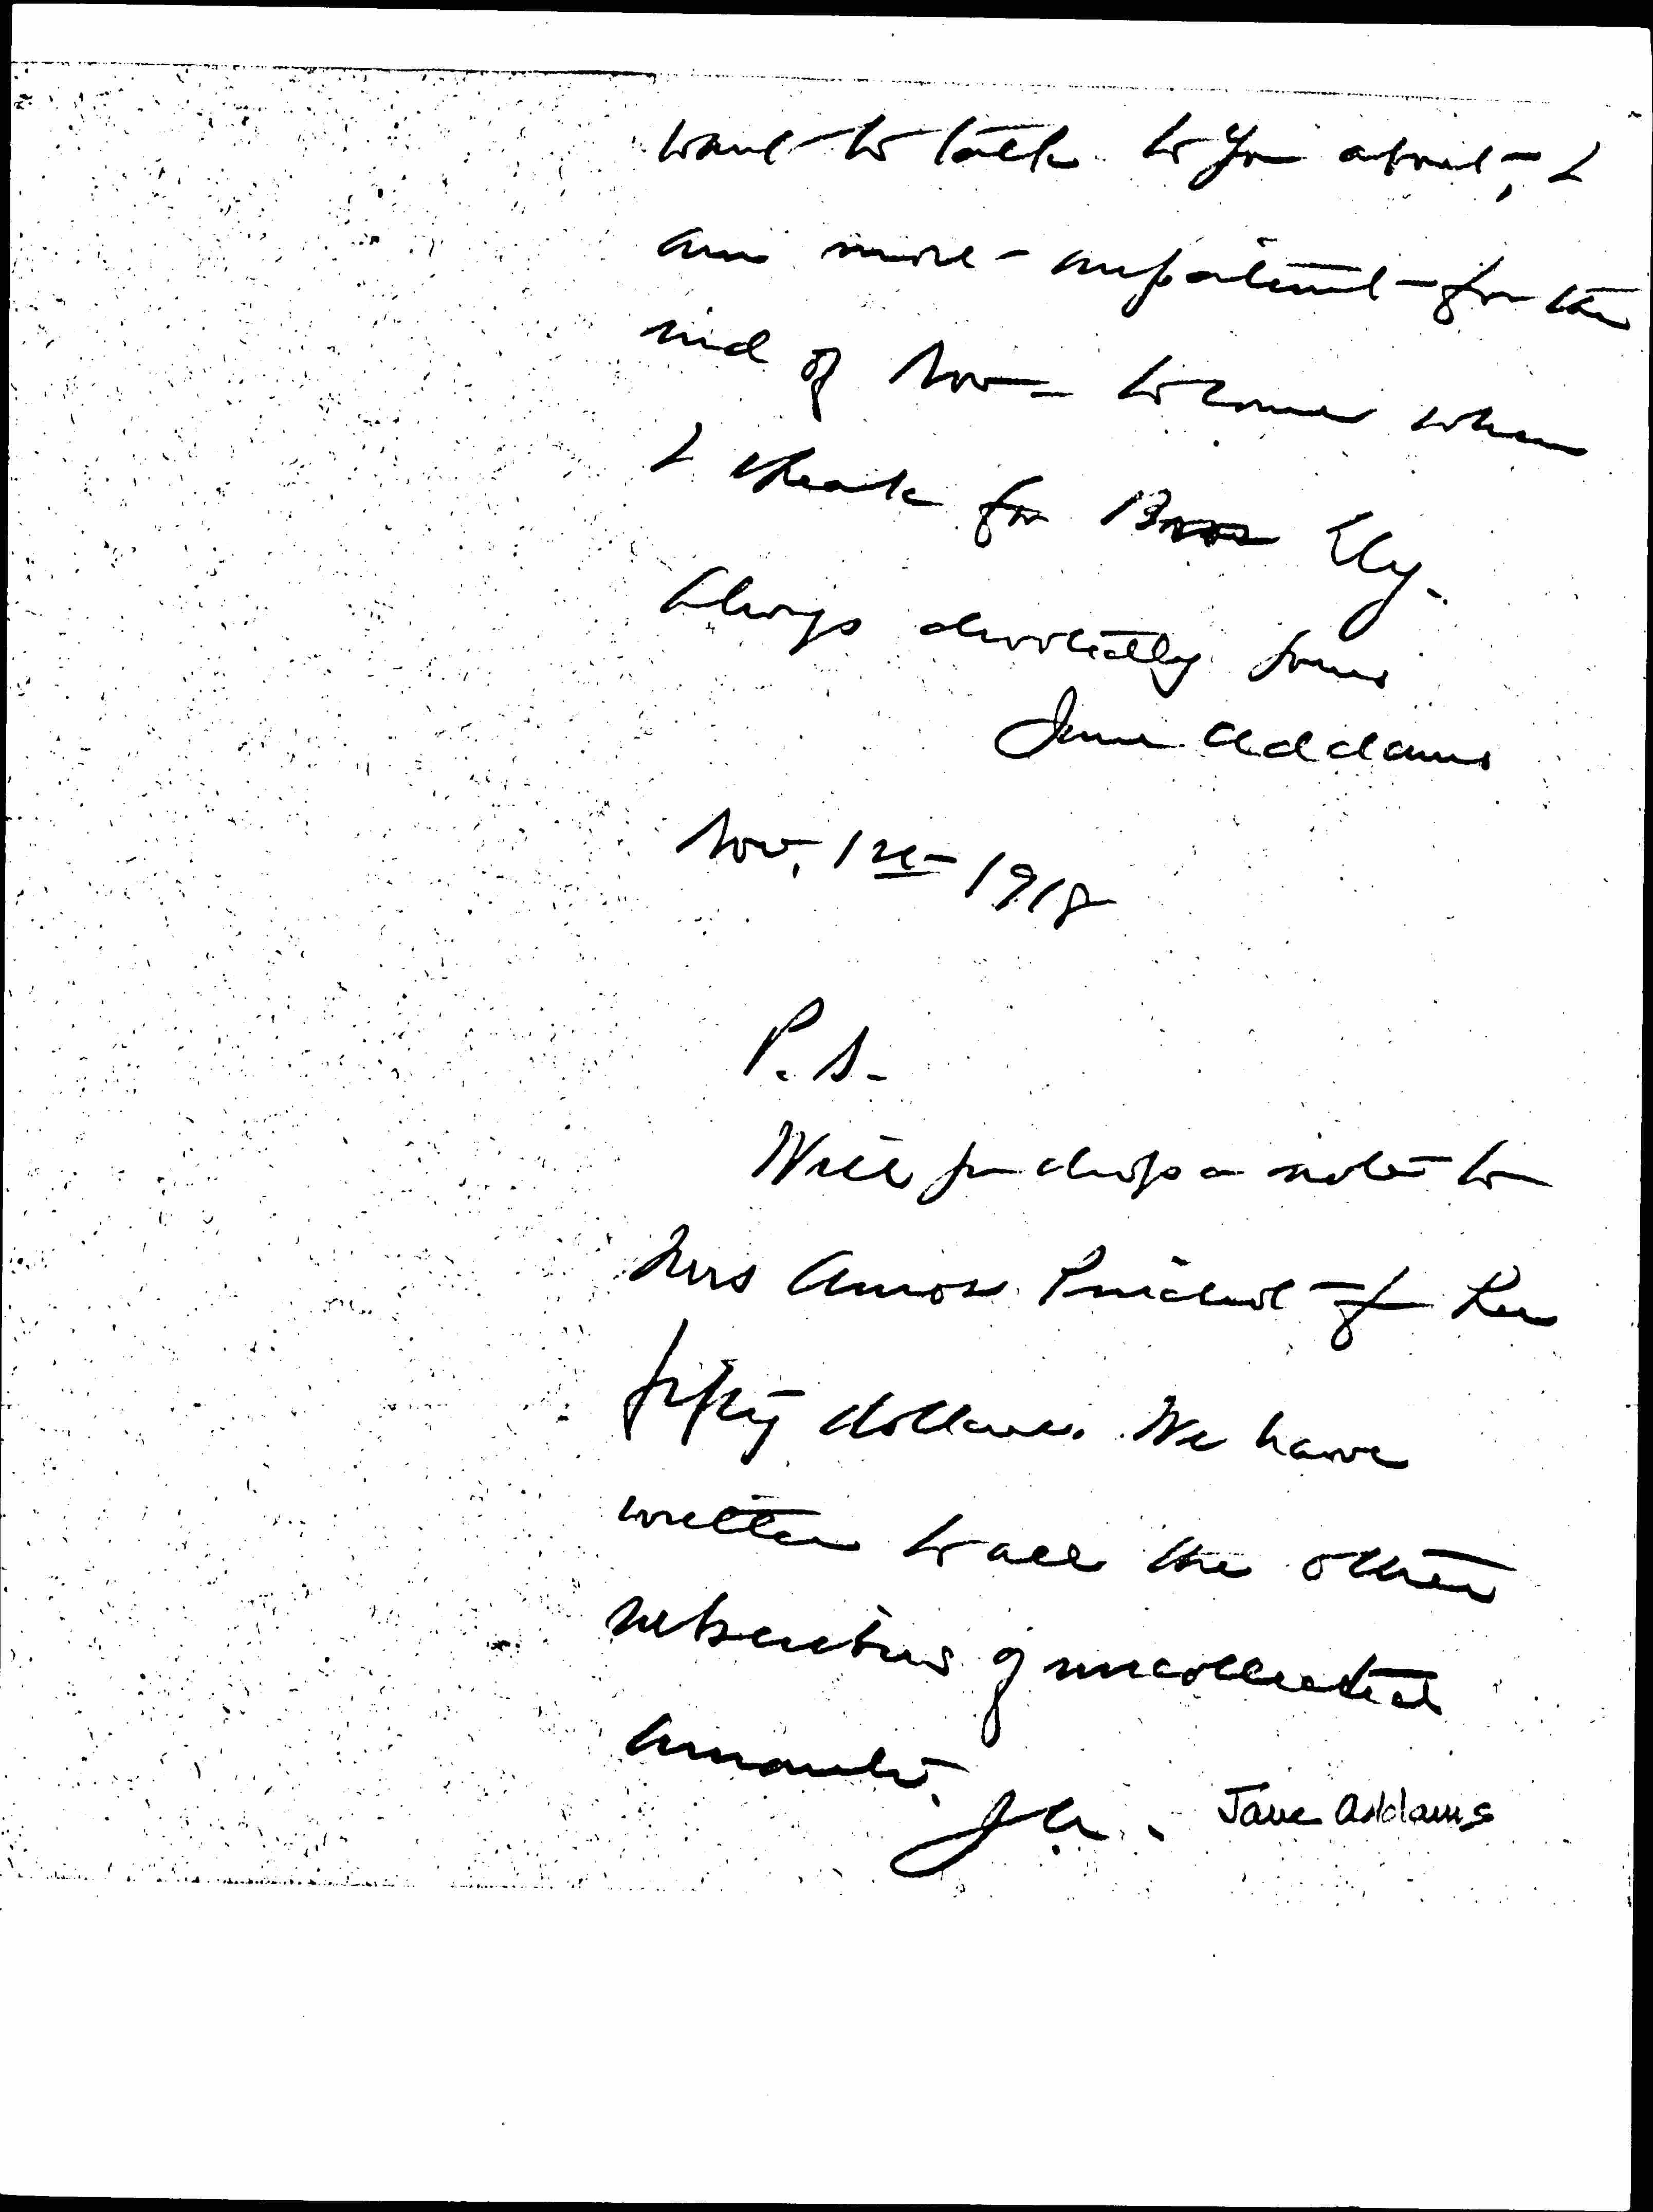 want to talk to you about, I
am most impatient for the
mid of Nov - to come when
I speak for Ely.
Always devotedly yours
Jane Addams
Nov. 1st 1918
P.S.
Will you drop a note to
Mrs Amos Pinchot of her
fifty dollars. We have
written to all the other
subscribers of uncollected
amounts.
J A. Jane Addams